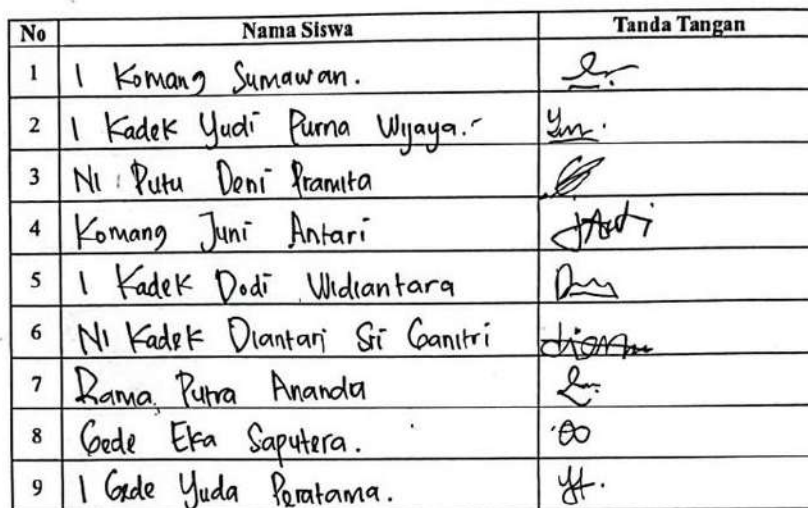 No Nama Siswa Tanda Tangan
1 I Komang Sumawan.
2 I Kadek Yudi Purna Wijaya.
3 Ni Putu Deni Pramita
4 Komang Juni Antari
5 I Kadek Dodi Widiantara
6 Ni Kadek Diantari Sri Ganitri
7 Rama Putra Ananda
8 Gede Eka Saputera.
9 I Gede Yuda Peratama.